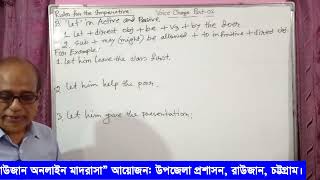 Rules for the Imperative: Voice Change Part-02
B. "Let" in Active and Passive
1. Let + direct obj + be + V3 + by the doer
2. sub + may (might) be allowed + to infinitive + direct obj
For Example:
1. Let him leave the class first.
2. Let him help the poor.
3. Let him gave the presentation.
াউজান অনলাইন মাদরাসা” আয়োজনঃ উপজেলা প্রশাসন, রাউজান, চট্টগ্রাম।